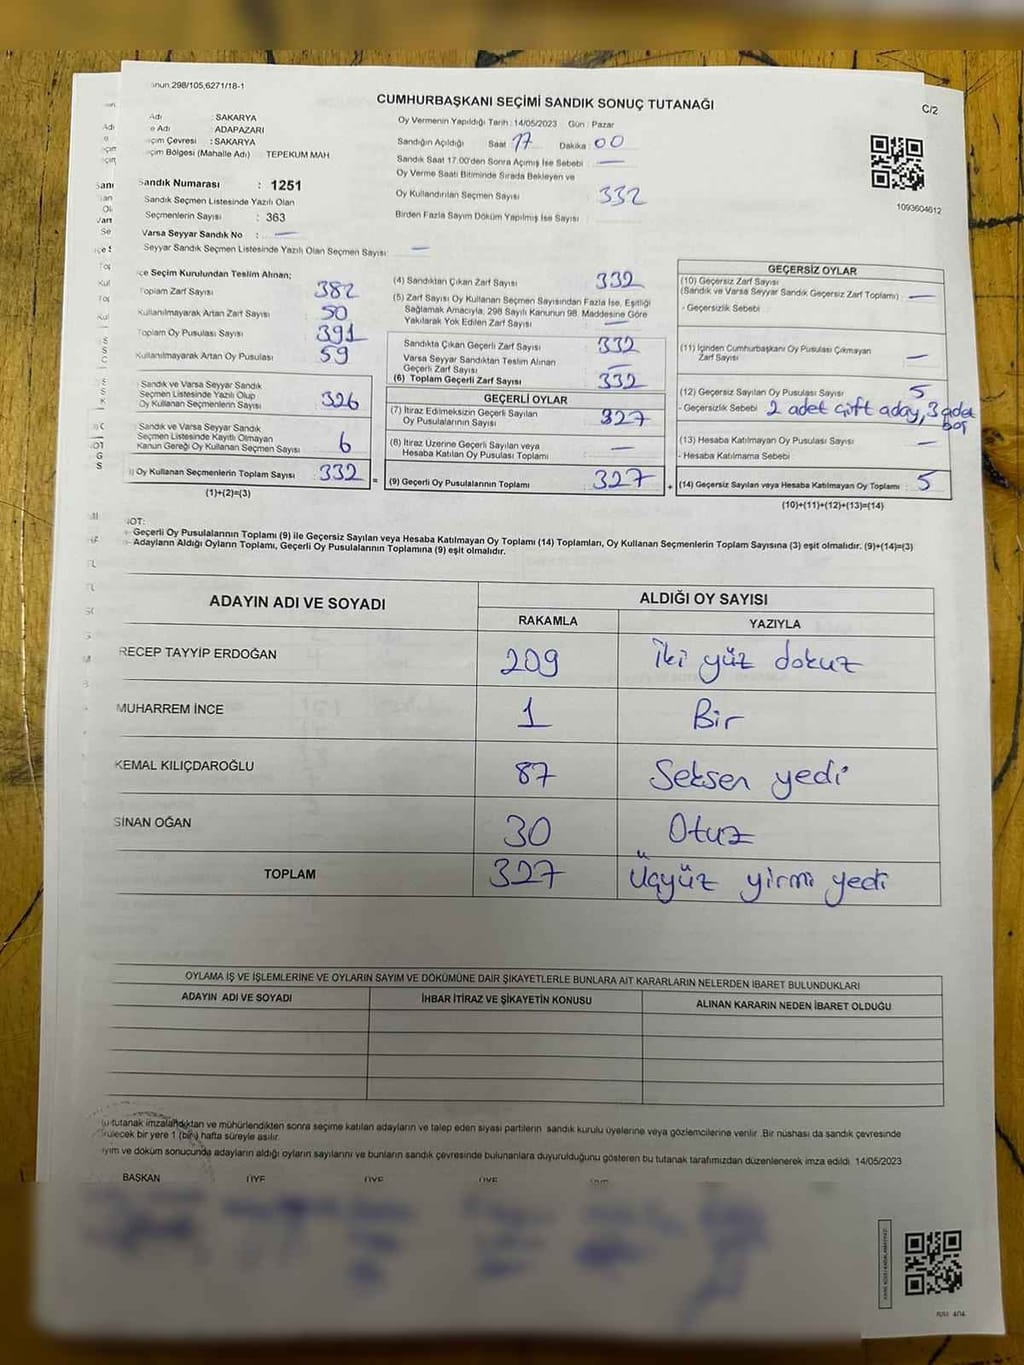 298/105,6271/18-1
CUMHURBAŞKANI SEÇİMİ SANDIK SONUÇ TUTANAĞI
C/2
: SAKARYA
Adı : ADAPAZARI
Çevresi : SAKARYA
Bölgesi (Mahalle Adı) TEPEKUM MAH
Sandık Numarası : 1251
Sandık Seçmen Listesinde Yazılı Olan
Seçmenlerin Sayısı : 363
Varsa Seyyar Sandık No : —
Seyyar Sandık Seçmen Listesinde Yazılı Olan Seçmen Sayısı: —
Oy Vermenin Yapıldığı Tarih : 14/05/2023 Gün : Pazar
Sandığın Açıldığı Saat : 17 Dakika : 00
Sandık Saat 17.00'den Sonra Açımış İse Sebebi : —
Oy Verme Saati Bitiminde Sırada Bekleyen ve
Oy Kullandırılan Seçmen Sayısı : 332
Birden Fazla Sayım Döküm Yapılmış İse Sayısı :
1093604612
Seçim Kurulundan Teslim Alınan;
Toplam Zarf Sayısı 382
Kullanılmayarak Artan Zarf Sayısı 50
Toplam Oy Pusulası Sayısı 391
Kullanılmayarak Artan Oy Pusulası 59
Sandık ve Varsa Seyyar Sandık
Seçmen Listesinde Yazılı Olup
Oy Kullanan Seçmenlerin Sayısı 326
Sandık ve Varsa Seyyar Sandık
Seçmen Listesinde Kayıtlı Olmayan
Kanun Gereği Oy Kullanan Seçmen Sayısı 6
Oy Kullanan Seçmenlerin Toplam Sayısı 332 =
(1)+(2)=(3)
(4) Sandıktan Çıkan Zarf Sayısı 332
(5) Zarf Sayısı Oy Kullanan Seçmen Sayısından Fazla İse, Eşitliği
Sağlamak Amacıyla, 298 Sayılı Kanunun 98. Maddesine Göre
Yakılarak Yok Edilen Zarf Sayısı —
Sandıkta Çıkan Geçerli Zarf Sayısı 332
Varsa Seyyar Sandıktan Teslim Alınan
Geçerli Zarf Sayısı —
(6) Toplam Geçerli Zarf Sayısı 332
GEÇERLİ OYLAR
(7) İtiraz Edilmeksizin Geçerli Sayılan
Oy Pusulalarının Sayısı 327
(8) İtiraz Üzerine Geçerli Sayılan veya
Hesaba Katılan Oy Pusulası Toplamı —
(9) Geçerli Oy Pusulalarının Toplamı 327 +
GEÇERSİZ OYLAR
(10) Geçersiz Zarf Sayısı
(Sandık ve Varsa Seyyar Sandık Geçersiz Zarf Toplamı) —
- Geçersizlik Sebebi :
(11) İçinden Cumhurbaşkanı Oy Pusulası Çıkmayan
Zarf Sayısı —
(12) Geçersiz Sayılan Oy Pusulası Sayısı 5
- Geçersizlik Sebebi : 2 adet çift aday, 3 adet
boş
(13) Hesaba Katılmayan Oy Pusulası Sayısı —
- Hesaba Katılmama Sebebi
(14) Geçersiz Sayılan veya Hesaba Katılmayan Oy Toplamı : 5
(10)+(11)+(12)+(13)=(14)
NOT:
- Geçerli Oy Pusulalarının Toplamı (9) ile Geçersiz Sayılan veya Hesaba Katılmayan Oy Toplamı (14) Toplamları, Oy Kullanan Seçmenlerin Toplam Sayısına (3) eşit olmalıdır. (9)+(14)=(3)
- Adayların Aldığı Oyların Toplamı, Geçerli Oy Pusulalarının Toplamına (9) eşit olmalıdır.
ADAYIN ADI VE SOYADI
ALDIĞI OY SAYISI
RAKAMLA YAZIYLA
RECEP TAYYİP ERDOĞAN 209 İki yüz dokuz
MUHARREM İNCE 1 Bir
KEMAL KILIÇDAROĞLU 87 Seksen yedi
SİNAN OĞAN 30 Otuz
TOPLAM 327 Üçyüz yirmi yedi
OYLAMA İŞ VE İŞLEMLERİNE VE OYLARIN SAYIM VE DÖKÜMÜNE DAİR ŞİKAYETLERLE BUNLARA AİT KARARLARIN NELERDEN İBARET BULUNDUKLARI
ADAYIN ADI VE SOYADI İHBAR İTİRAZ VE ŞİKAYETİN KONUSU ALINAN KARARIN NEDEN İBARET OLDUĞU
tutanak imzalandıktan ve mühürlendikten sonra seçime katılan adayların ve talep eden siyasi partilerin sandık kurulu üyelerine veya gözlemcilerine verilir. Bir nüshası da sandık çevresinde
bir yere 1 (bir) hafta süreyle asılır.
ve döküm sonucunda adayların aldığı oyların sayılarını ve bunların sandık çevresinde bulunanlara duyurulduğunu gösteren bu tutanak tarafımızdan düzenlenerek imza edildi. 14/05/2023
BAŞKAN ÜYE ÜYE ÜYE